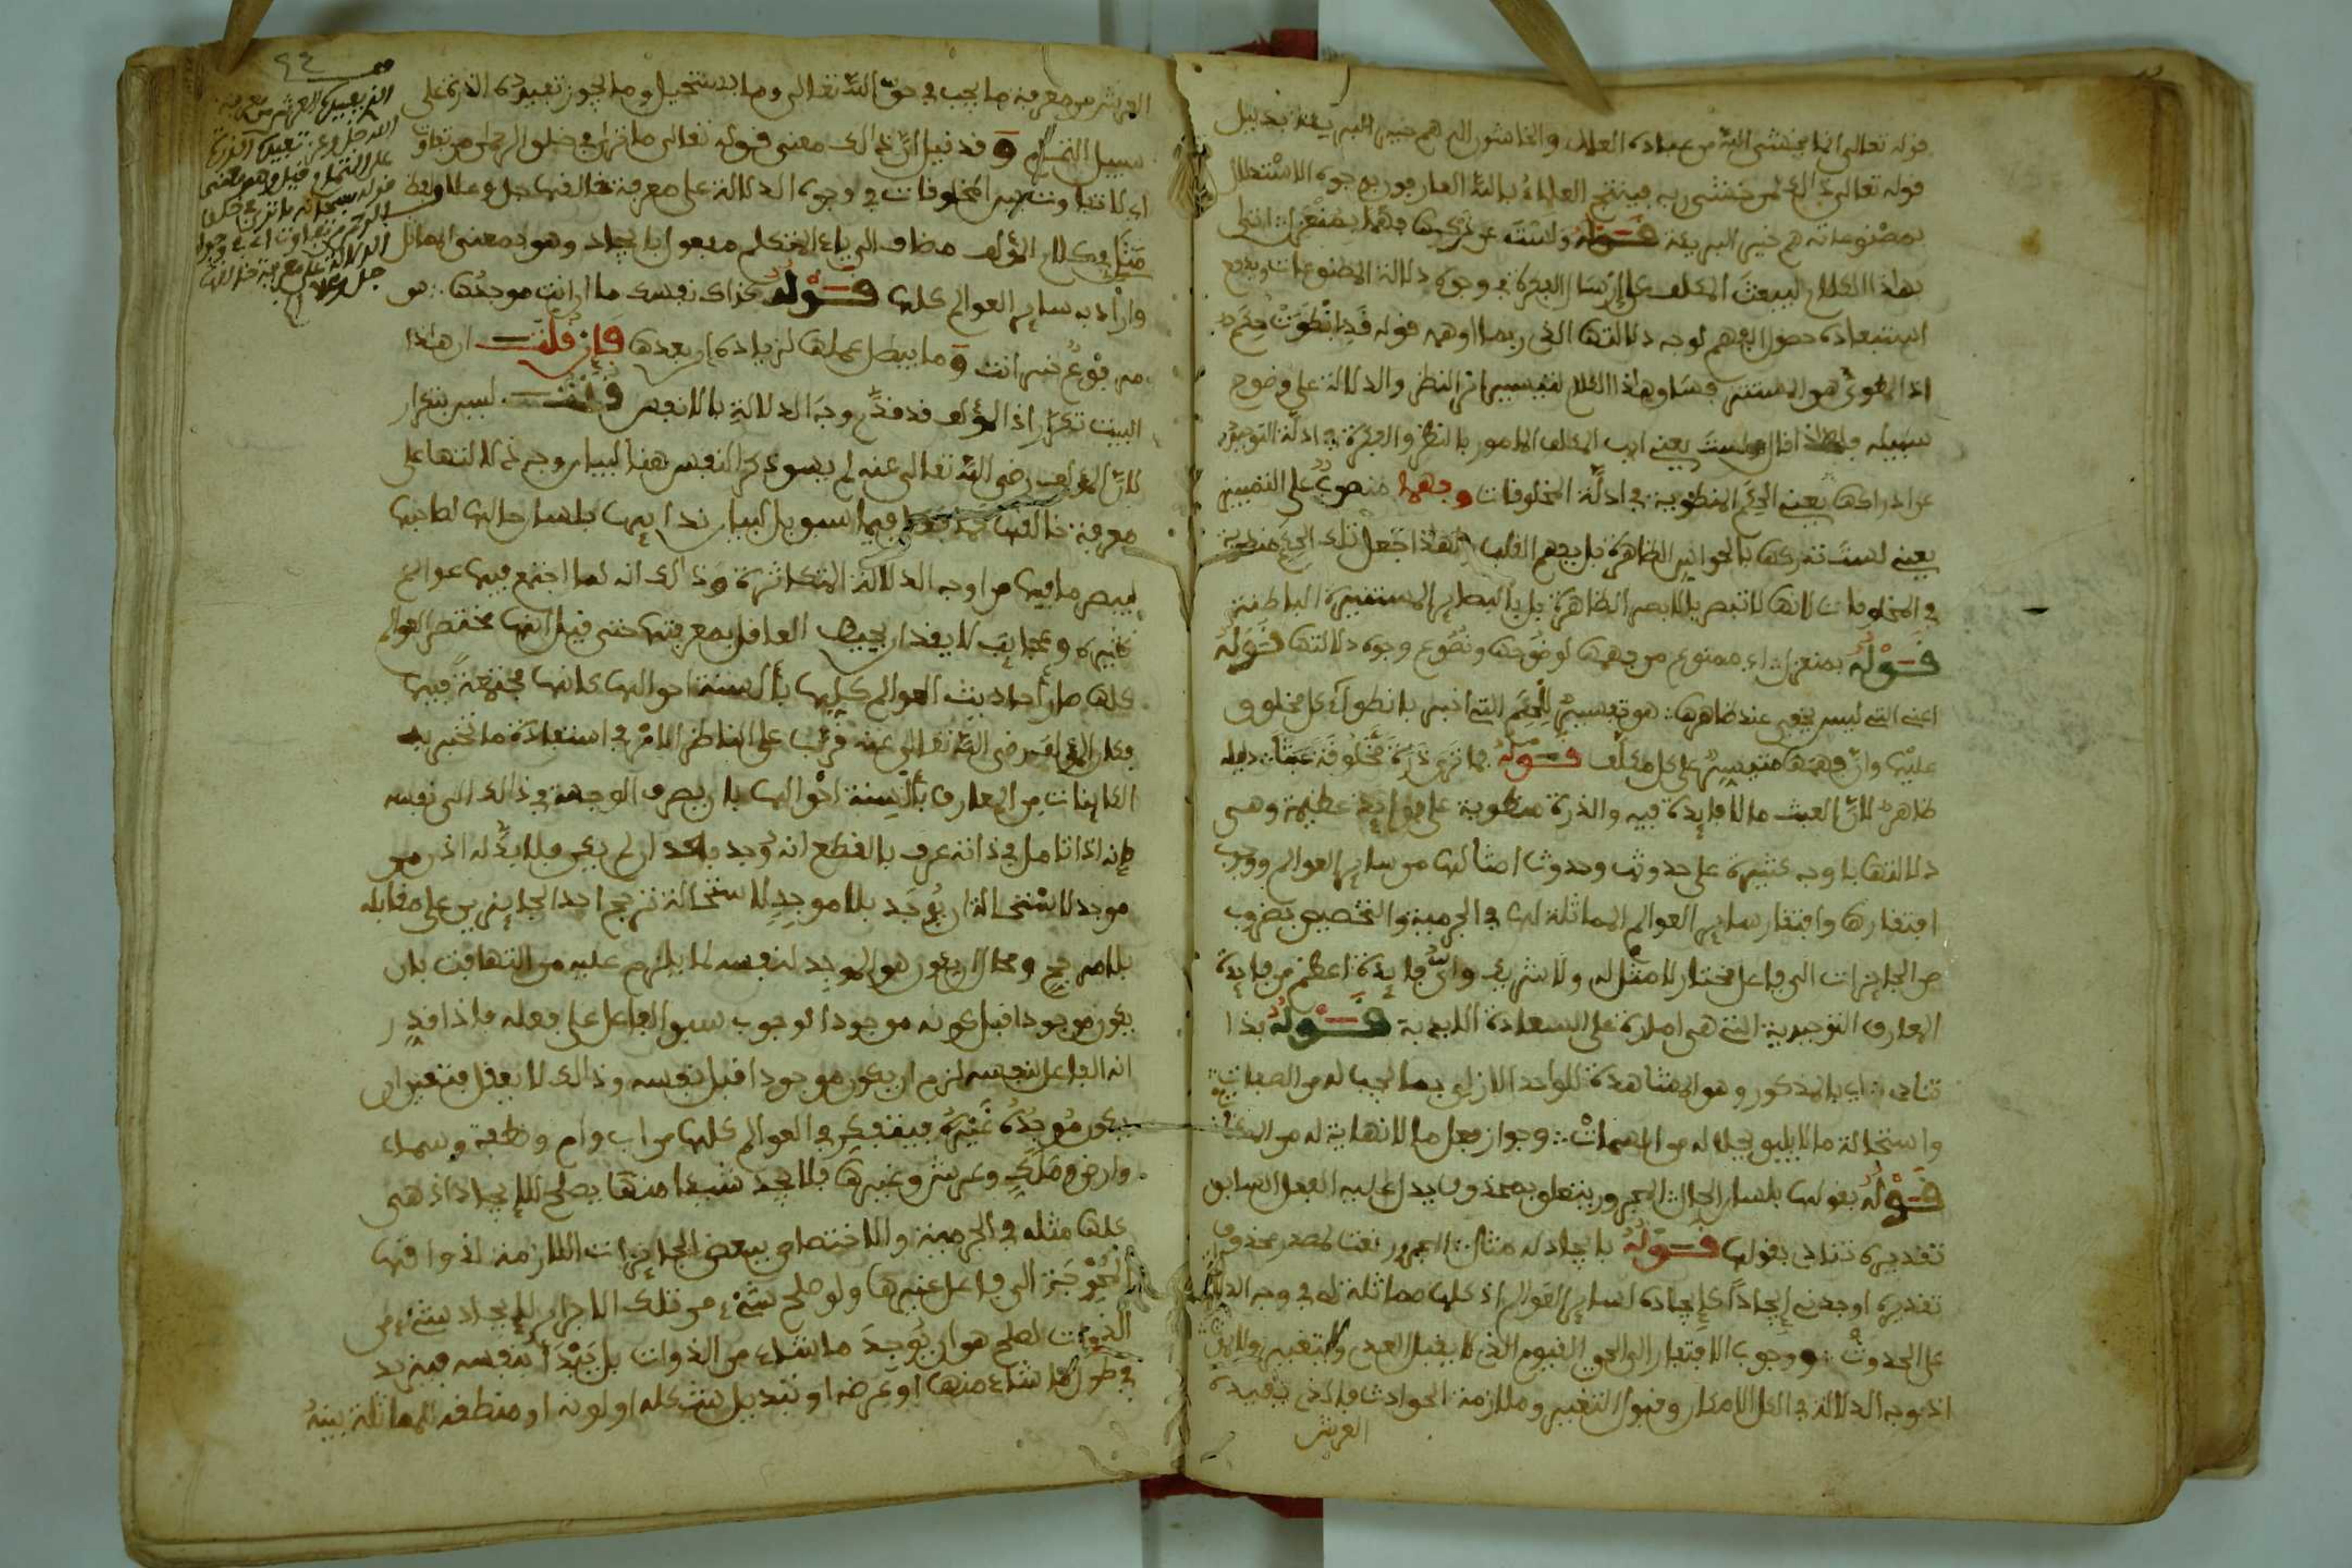 قوله تعالى انما يخشى الله من عباده العلماء والخاشون الله هم خير البرية بدليل
قوله تعالى ذالك لمن خشي ربه فينتج العلماء بالله العارفون بوجوه الاستدلال
بمصنوعاته هم خير البرية قوله ولست عن فهمها بمنعزل انتهى
بهذا الكلام ليبعث المكلف على ارسال الفكرة في وجوه دلالة المصنوعات ويدفع
استبعاده حصول الفهم لوجه دلالتها الذي ربما اوهمه قوله قد انطوت حكم
اذ المطوي هو المستتر فساق هاذا الكلام لتيسير امر النظر والدلالة على وضوح
سبيله فلهاذا قال ولست يعني ايها المكلف المامور بالنظر والفكرة في ادلة التوحيد
عن ادراكها يعني الحكم المنطوية في ادلة المخلوقات وفهما منصوب على التمييز
يعني لست تدركها بالحواس الظاهرة بل بفهم القلب ولهذا جعل تلك الحكم منطوية
في المخلوقات لانها لا تبصر بالابصار الظاهرة بل بالبصاير المستنيرة الباطنة
قوله بمنعزل اي ممنوع من فهمها لوضوحها ونصوع وجوه دلالتها قوله
اعني التي ليس يخفى عند ظاهرها هو تفسير للحكم التي اخبر بانطواء كل مخلوق
عليها وان فهمها متيسر على كل مكلف قوله فما ترى ذرة مخلوقة عبثا دليله
ظاهر لان العبث ما لا فايدة فيه والذرة منطوية على فوايد عظيمة وهي
دلالتها باوجه كثيرة على حدوثها وحدوث امثالها من ساير العوالم ووجوب
افتقارها وافتقار ساير العوالم المماثلة لها في الجرمية والتخصيص بضروب
من الجايزات الى فاعل مختار لا مثل له ولا شريك واي فايدة اعظم من فايدة
المعارف التوحيدية التي هي امارة على السعادة الابدية قوله بذا
تنادي اي بالمذكور وهو المشاهدة للواحد الازلي بما يجب له من الصفات
واستحالة ما لا يليق بجلاله من السمات وجواز فعل ما لا نهاية له من الممكنات
قوله بقولها بلسان الحال المجرور يتعلق بمحذوف يدل عليه الفعل السابق
تقديره تنادي بقولها قوله بايجاده مثلي المجرور نعت لمصدر محذوف
تقديره اوجدني ايجادا كايجاده لساير العوالم اذ كلها مماثلة لي في وجه الدلالة
على الحدوث ووجوب الافتقار الى الحي القيوم الذي لا يقبل العدم ولا يتغير
اذ وجه الدلالة في الكل الامكان وقبول التغيير وملازمة الحوادث فالذي يفيده
العرش
العرش من معرفة ما يجب في حق الله تعالى وما يستحيل وما يجوز تفيده الذرة على
سبيل التمام وقد قيل ان ذالك معنى قوله تعالى ما ترى في خلق الرحمن من تفاوت
اي لا تفاوت بين المخلوقات في وجوه الدلالة على معرفة خالقها جل وعلا ولفظ
مثلي في كلام المؤلف مضاف الى ياء المتكلم مفعول بايجاد وهو بمعنى المماثل
واراد به ساير العوالم كلها قوله فذاك نفسك ما ان انت موجدها هو
مرفوع خبر انت وما يبطل عملها لزيادة ان بعدها فان قلت ان هاذا
البيت تكرار اذ المؤلف قد قدم وجه الدلالة بالانفس قلت ليس بتكرار
لان المؤلف رضي الله تعالى عنه لم يسق ذكر النفس هنا لبيان وجه دلالتها على
معرفة خالقها فيما سبق بل لبيان ندايها بلسان حالها لصاحبها
ليبصر ما فيها من اوجه الدلالة المتكاثرة وذالك انه لما اجتمع فيها عوالم
كثيرة وعجايب لا يقدر ان يحيط العاقل بمعرفتها حتى قيل انها مختصر العوالم
كلها صار احاديث العوالم كلها بالسنة احوالها كانها مجتمعة فيها
فكان المؤلف رضي الله تعالى عنه قرب على الناظر الامر في استفادة ما تخبر به
الكاينات من المعارف بالسنة احوالها بان يصرف الوجهة في ذالك الى نفسه
فانه اذا تامل في ذاته عرف بالقطع انه وجد بعد ان لم يكن فلا بد له اذن من
موجد لاستحالة ان يوجد بلا موجد لاستحالة ترجح احد الجايزين على مقابله
بلا مرجح ومحال ان يكون هو الموجد لنفسه لما يلزم عليه من التهافت بان
يكون موجودا قبل كونه موجودا لوجوب سبق الفاعل على فعله فاذا قدر
انه الفاعل لنفسه لزم ان يكون موجودا قبل نفسه وذالك لا يعقل فتعين ان
يكون موجده غيره فيتفكر في العوالم كلها من اب وام ونطفة وسماء
وارض وملك وعرش وغيرها فلا يجد شيئا منها يصلح للايجاد اذ هي
كلها مثله في الجرمية والاختصاص ببعض الجايزات اللازمة لذواتها
المحوجة الى فاعل غيرها ولو صلح شيء من تلك الاجرام لايجاد شيء من
الذوات لصلح هو ان يوجد ما شاء من الذوات بل يبدا بنفسه فيزيد
في طولها ما شاء منها او عرضه او تبديل شكله او لونه او منطقه للمماثلة بينه
٩٤
الذي يفيده العرش من معرفة
الله جل وعز تفيده الذرة
على التمام وقيل وهو معنى
قوله سبحانه ما ترى في خلق
الرحمن من تفاوت اي في وجوه
الدلالة على معرفة خالقها
جل وعلا